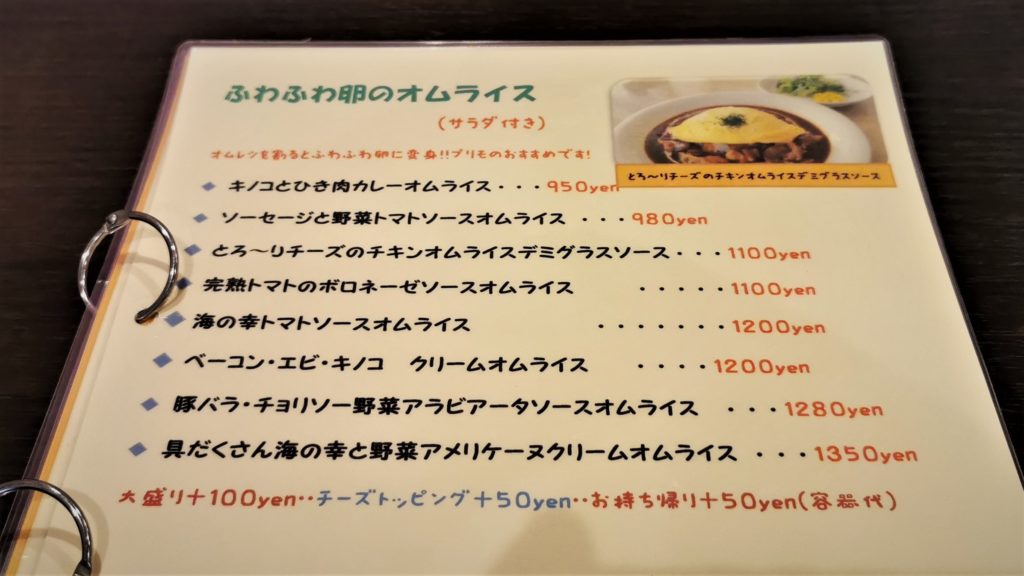 ふわふわ卵のオムライス
(サラダ付き)
オムレツを割るとふわふわ卵に変身!!プリモのおすすめです!
とろ〜りチーズのチキンオムライスデミグラスソース
キノコとひき肉カレーオムライス・・・950yen
ソーセージと野菜トマトソースオムライス ・・・980yen
とろ〜りチーズのチキンオムライスデミグラスソース・・・1100yen
完熟トマトのボロネーゼソースオムライス ・・・・・1100yen
海の幸トマトソースオムライス ・・・・・・・1200yen
ベーコン・エビ・キノコ クリームオムライス ・・・・1200yen
豚バラ・チョリソー野菜アラビアータソースオムライス ・・・1280yen
具だくさん海の幸と野菜アメリケーヌクリームオムライス ・・・1350yen
大盛り+100yen・・チーズトッピング+50yen・・お持ち帰り+50yen(容器代)